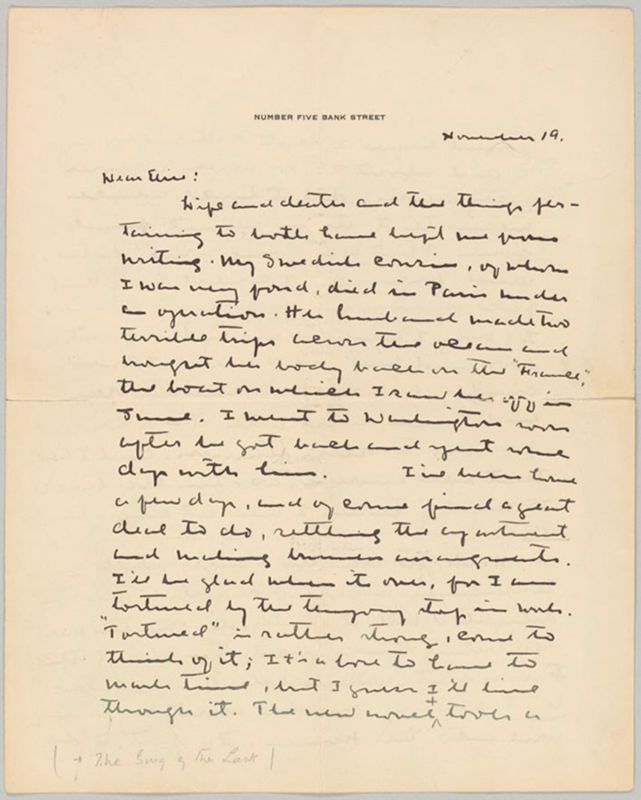 NUMBER FIVE BANK STREET
November 19.
Dear Elsie:
Life and death and the things per-
taining to both have kept me from
writing. My Swedish cousin, of whom
I was very fond, died in Paris under
an operation. Her husband made two
terrible trips across the ocean and
brought her body back on the "France",
the boat on which I saw her off in
June. I went to Washington soon
after he got back and spent some
days with him. I've been home
a few days, and of course find a great
deal to do, settling the apartment
and making business arrangments.
I'll be glad when its over, for I am
tortured by the temporary stop in work.
"Tortured" is rather strong, come to
think of it; It's a bore to have to
mark time, but I guess I'll live
through it. The new novel + took a
( + The Song of the Lark )